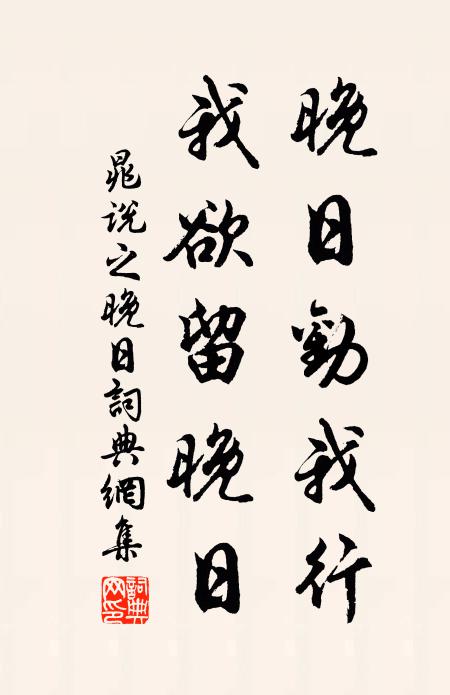 晚日勸我行
我欲留晚日
晁說之晚日詞典網集
詞典網印